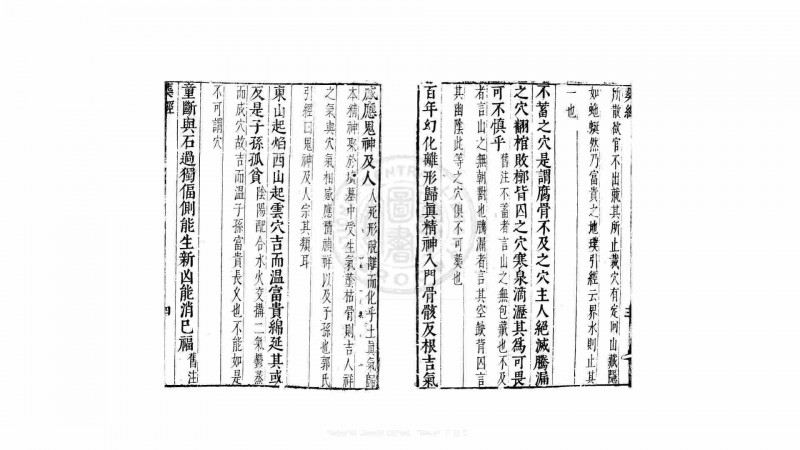 葬經
所散欲官不出菆其所止藏穴有定回山藏隱
如蜿蜒然乃富貴之地璞引經云界水則止其
一也
不蓄之穴是謂腐骨不及之穴主人絕滅騰漏
之穴翻棺敗槨背囚之穴寒泉滴瀝其為可畏
可不慎乎舊注不蓄者言山之無包藏也不及
者言山之無朝對也騰漏者言其空缺背囚言
其幽陰此等之穴俱不可葬也
百年幻化離形歸眞精神入門骨骸反根吉氣
感應鬼神及人人死形脫離而化乎土眞氣歸
本精神聚於墳墓中受生氣蔭枯骨則吉人祥
之氣與穴氣相感應積禎祥以及子孫也郭氏
引經曰鬼神及人宗其類耳
東山起焰西山起雲穴吉而温富貴綿延其或
反是子孫孤貧陰陽配合水火交搆二氣鬱蒸
而成穴故吉而温子孫富貴長久也不能如是
不可謂穴
童斷與石過獨偪側能生新凶能消已福舊注
葬經
四